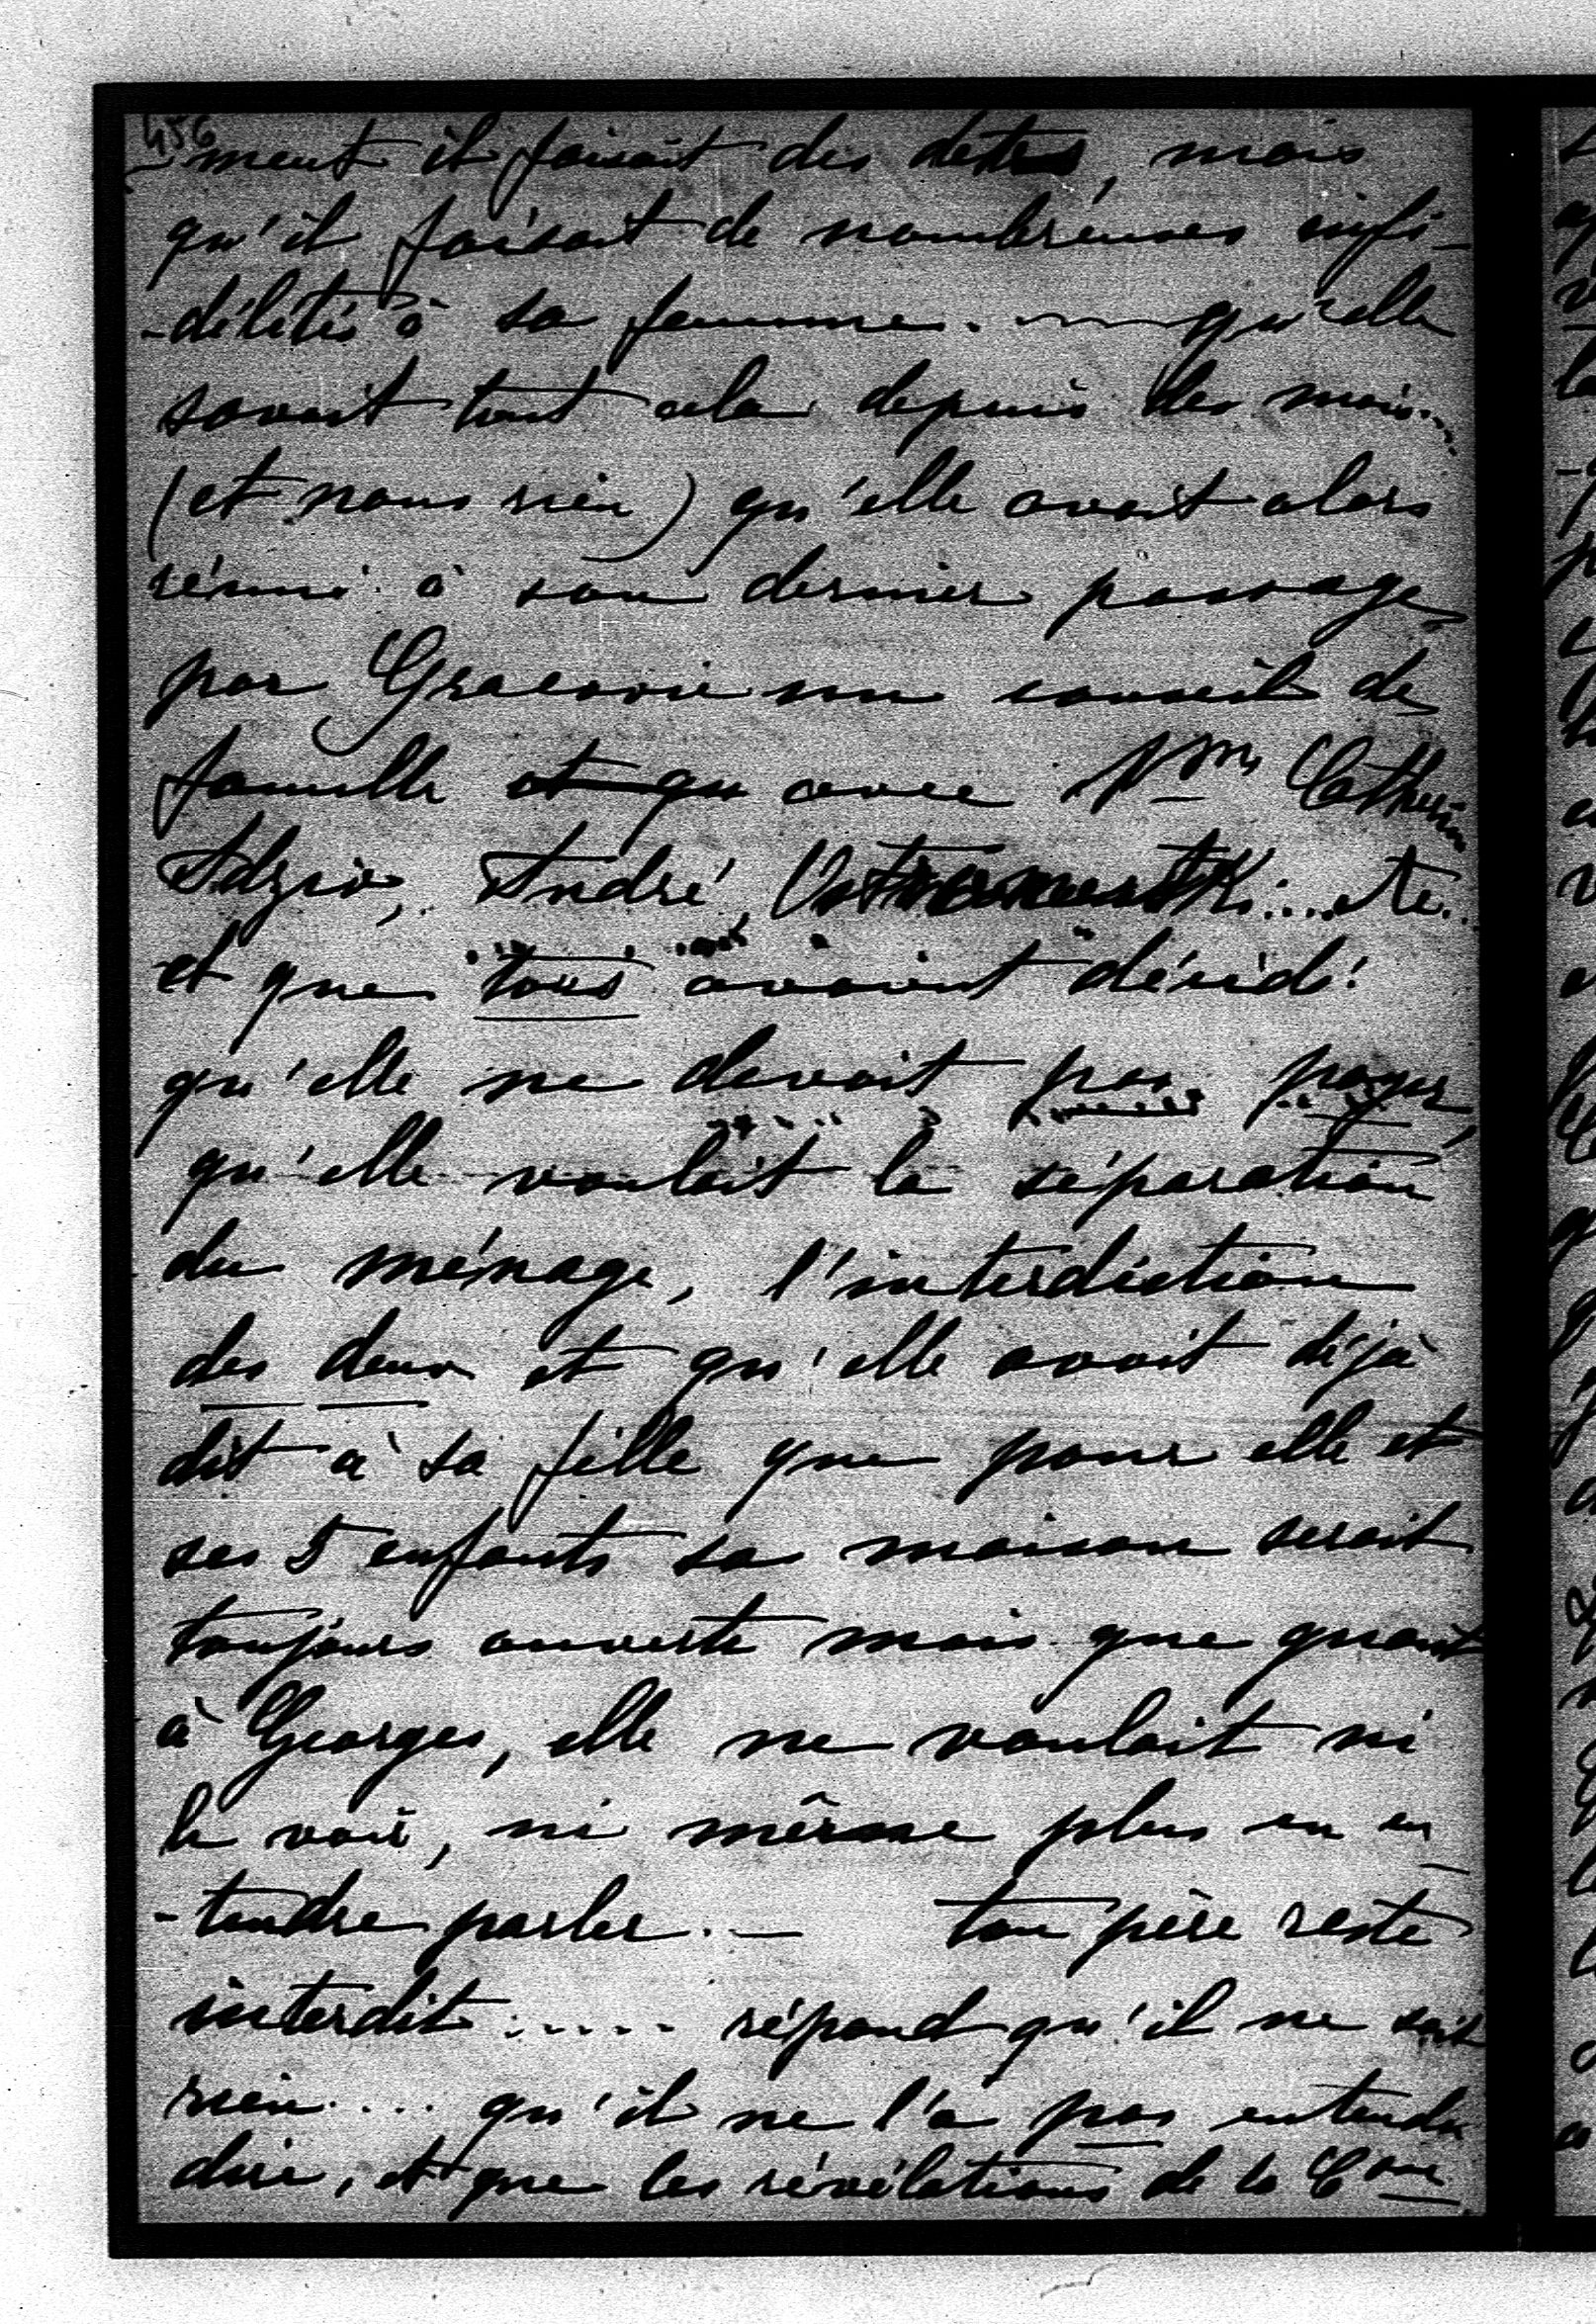 456
-ment il faisait des dettes, mais
qu'il faisait de nombreuses infi-
-délités à sa femme. — qu'elle
savait tout cela depuis des mois...
(et nous rien) qu'elle avait alors
réuni à son dernier passage
par Cracovie un conseil de
famille et qu avec Catherine
Adzio, André, ... etc..
et que tous avaient décidé
qu'elle ne devait pas payer,
qu'elle voulait la séparation
du ménage, l'interdiction
des deux et qu'elle avait déjà
dit à sa fille que pour elle et
ses 5 enfants sa maison serait
toujours ouverte mais que quant
à Georges, elle ne voulait ni
le voir, ni même plus en en-
-tendre parler. — ton père reste
interdit ..... répond qu'il ne sait
rien .... qu'il ne l'a pas entendu
dire, et que les révélations de la Ctesse